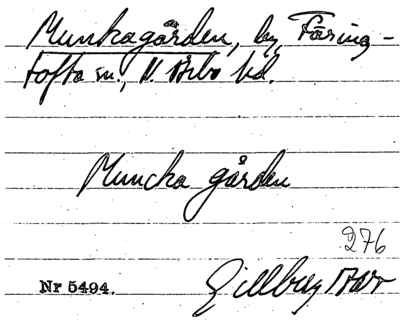 Munkagården, by, Färing-
tofta sn., N. Åsbo hd.
Muncka gården
276
Nr 5494. Gillberg